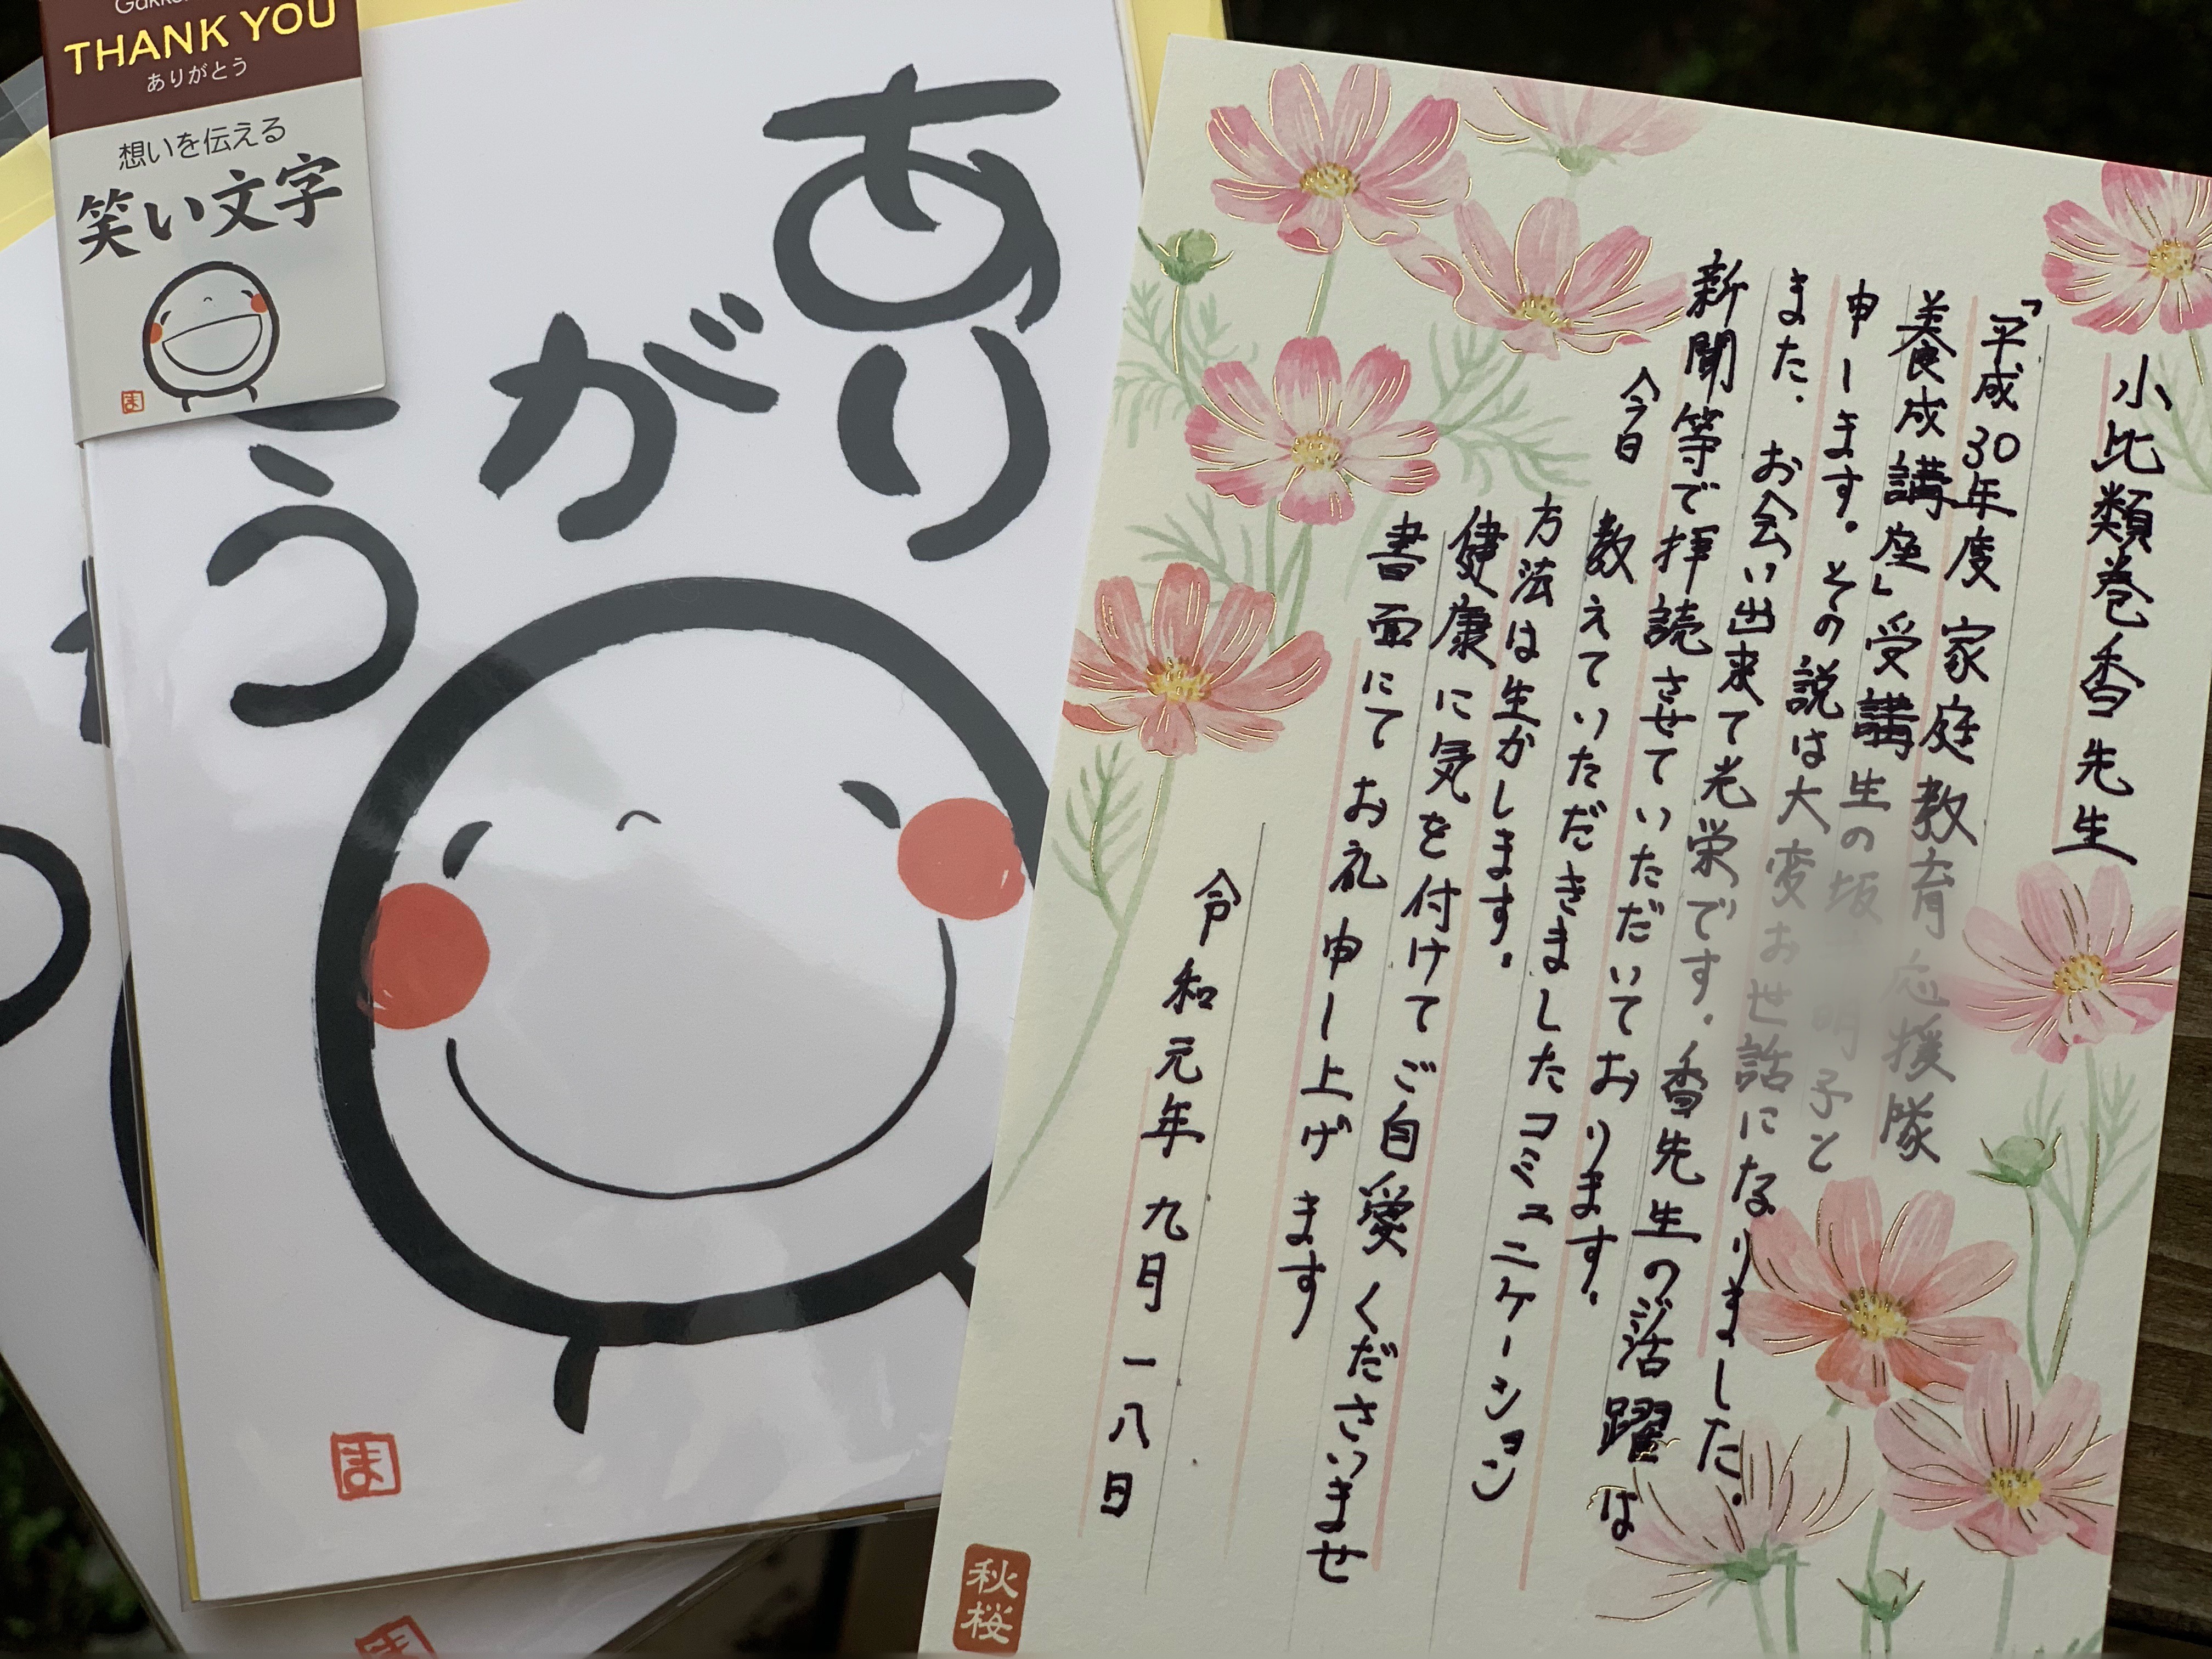 THANK YOU
ありがとう
想いを伝える
笑い文字
ま
あり
が
う
ま
小比類巻香先生
「平成30年度家庭教育応援隊
養成講座」受講生の坂 明子と
申します。その説は大変お世話になりました。
また、お会い出来て光栄です。香先生の活躍は
新聞等で拝読させていただいております。
今日
教えていただきましたコミュニケーション
方法は生かします。
健康に気を付けてご自愛くださいませ
書面にてお礼申し上げます
令和元年九月一八日
秋桜